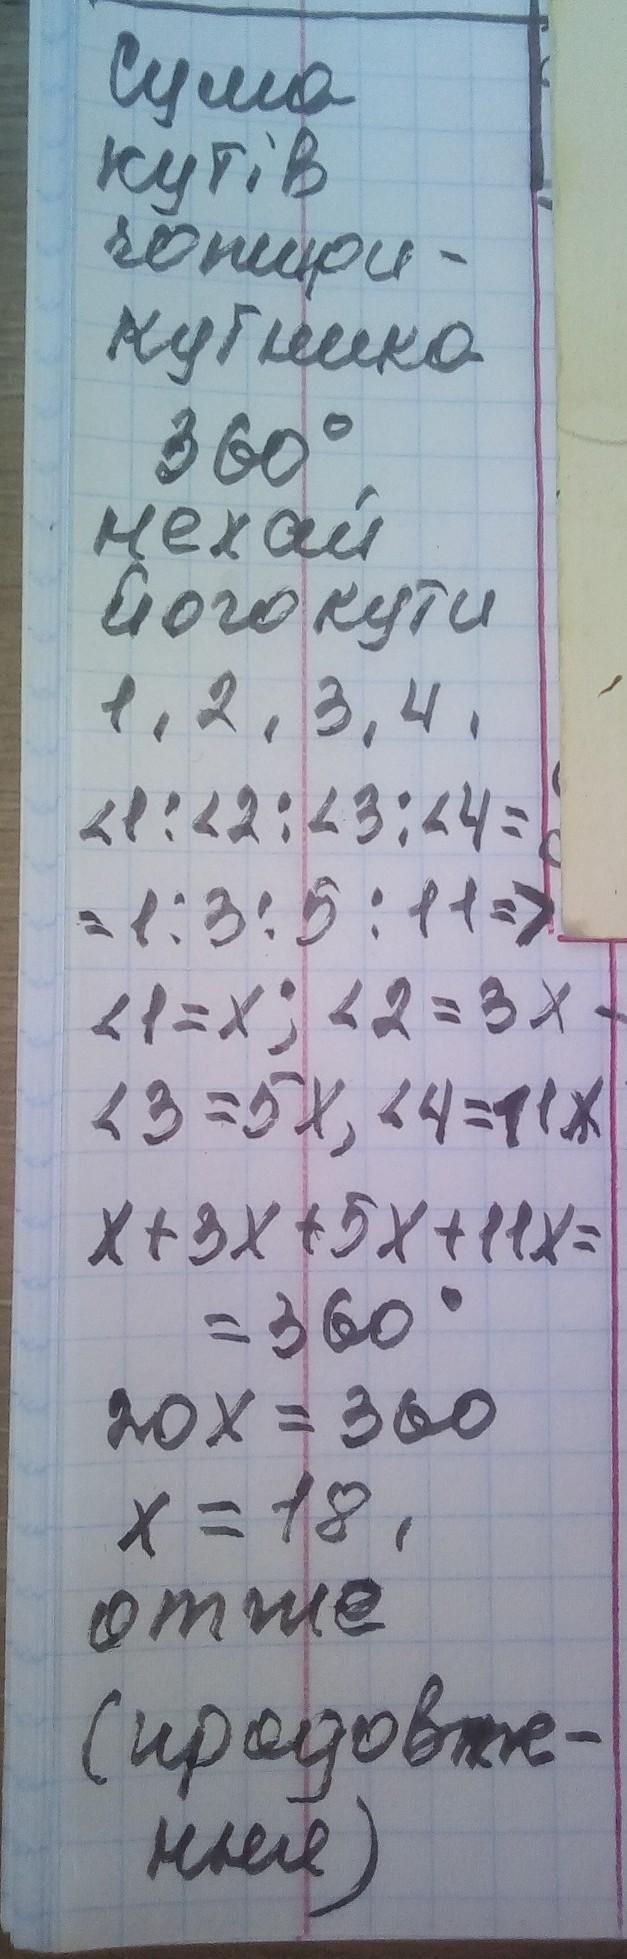 Сума
кутів
чотири-
кутника
360°
нехай
його кути
1, 2, 3, 4,
<1:<2:<3:<4=
=1:3:5:11=>
<1=x; <2=3x
<3=5x, <4=11x
x+3x+5x+11x=
=360°
20x=360
x=18,
отже
(продовже-
ння)